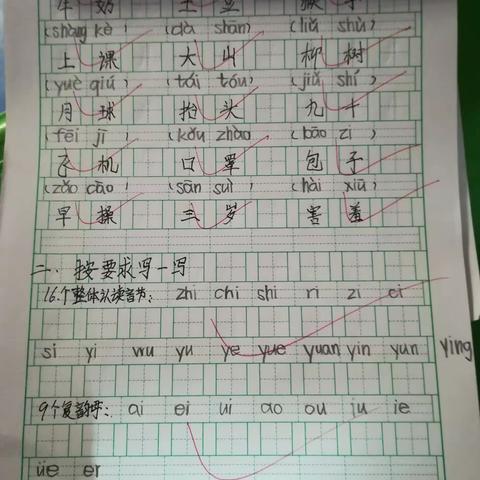 牛 奶
(shàng kè) (dà shān) (liǔ shù)
上 课 大 山 柳 树
(yuè qiú) (tái tóu) (jiǔ shí)
月 球 抬 头 九 十
(fēi jī) (kǒu zhào) (bāo zi)
飞 机 口 罩 包 子
(zǎo cāo) (sān suì) (hài xiū)
早 操 三 岁 害 羞
二、按要求写一写
16个整体认读音节: zhi chi shi ri zi ci
si yi wu yu ye yue yuan yin yun ying
9个复韵母: ai ei ui ao ou iu ie
üe er